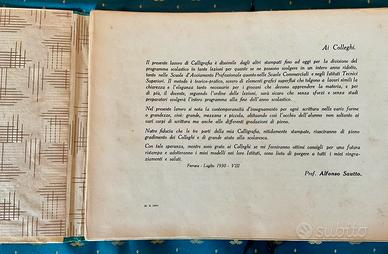 Ai Colleghi.
Il presente lavoro di Calligrafia è dissimile dagli altri stampati fino ad oggi per la divisione del
programma scolastico in tante lezioni per quante se ne possono svolgere in un intero anno ridotto,
tanto nelle Scuole d'Avviamento Professionale quanto nelle Scuole Commerciali e negli Istituti Tecnici
Superiori. Il metodo è teorico-pratico, scevro di elementi superflui che tolgono a lavori simili la
chiarezza e l'eleganza tanto necessarie per i giovani che devono apprendere la materia, e per
di più, il docente, seguendo l'ordine delle lezioni, sarà sicuro che senza sforzi e senza studi
preparatori svolgerà l'intero programma alla fine dell'anno scolastico.
Nel presente lavoro si nota la contemporaneità d'insegnamento per ogni scrittura nelle varie forme
o grandezze, cioè: grande, mezzana e piccola, abituando così l'occhio dell'alunno non soltanto ai
vari corpi di scrittura ma anche alle differenti gradazioni di pieno.
Nutro fiducia che le tre parti della mia Calligrafia, nitidamente stampate, riusciranno di pieno
gradimento dei Colleghi e di grande aiuto alla scolaresca.
Con tale speranza, mentre sono grato ai Colleghi se mi forniranno ottimi consigli per una futura
ristampa e adotteranno i miei modelli nei loro Istituti, sono lieto di porgere a tutti i miei ringra-
ziamenti e saluti.
Ferrara - Luglio 1930 - VIII
Prof. Alfonso Sautto.
subito.it